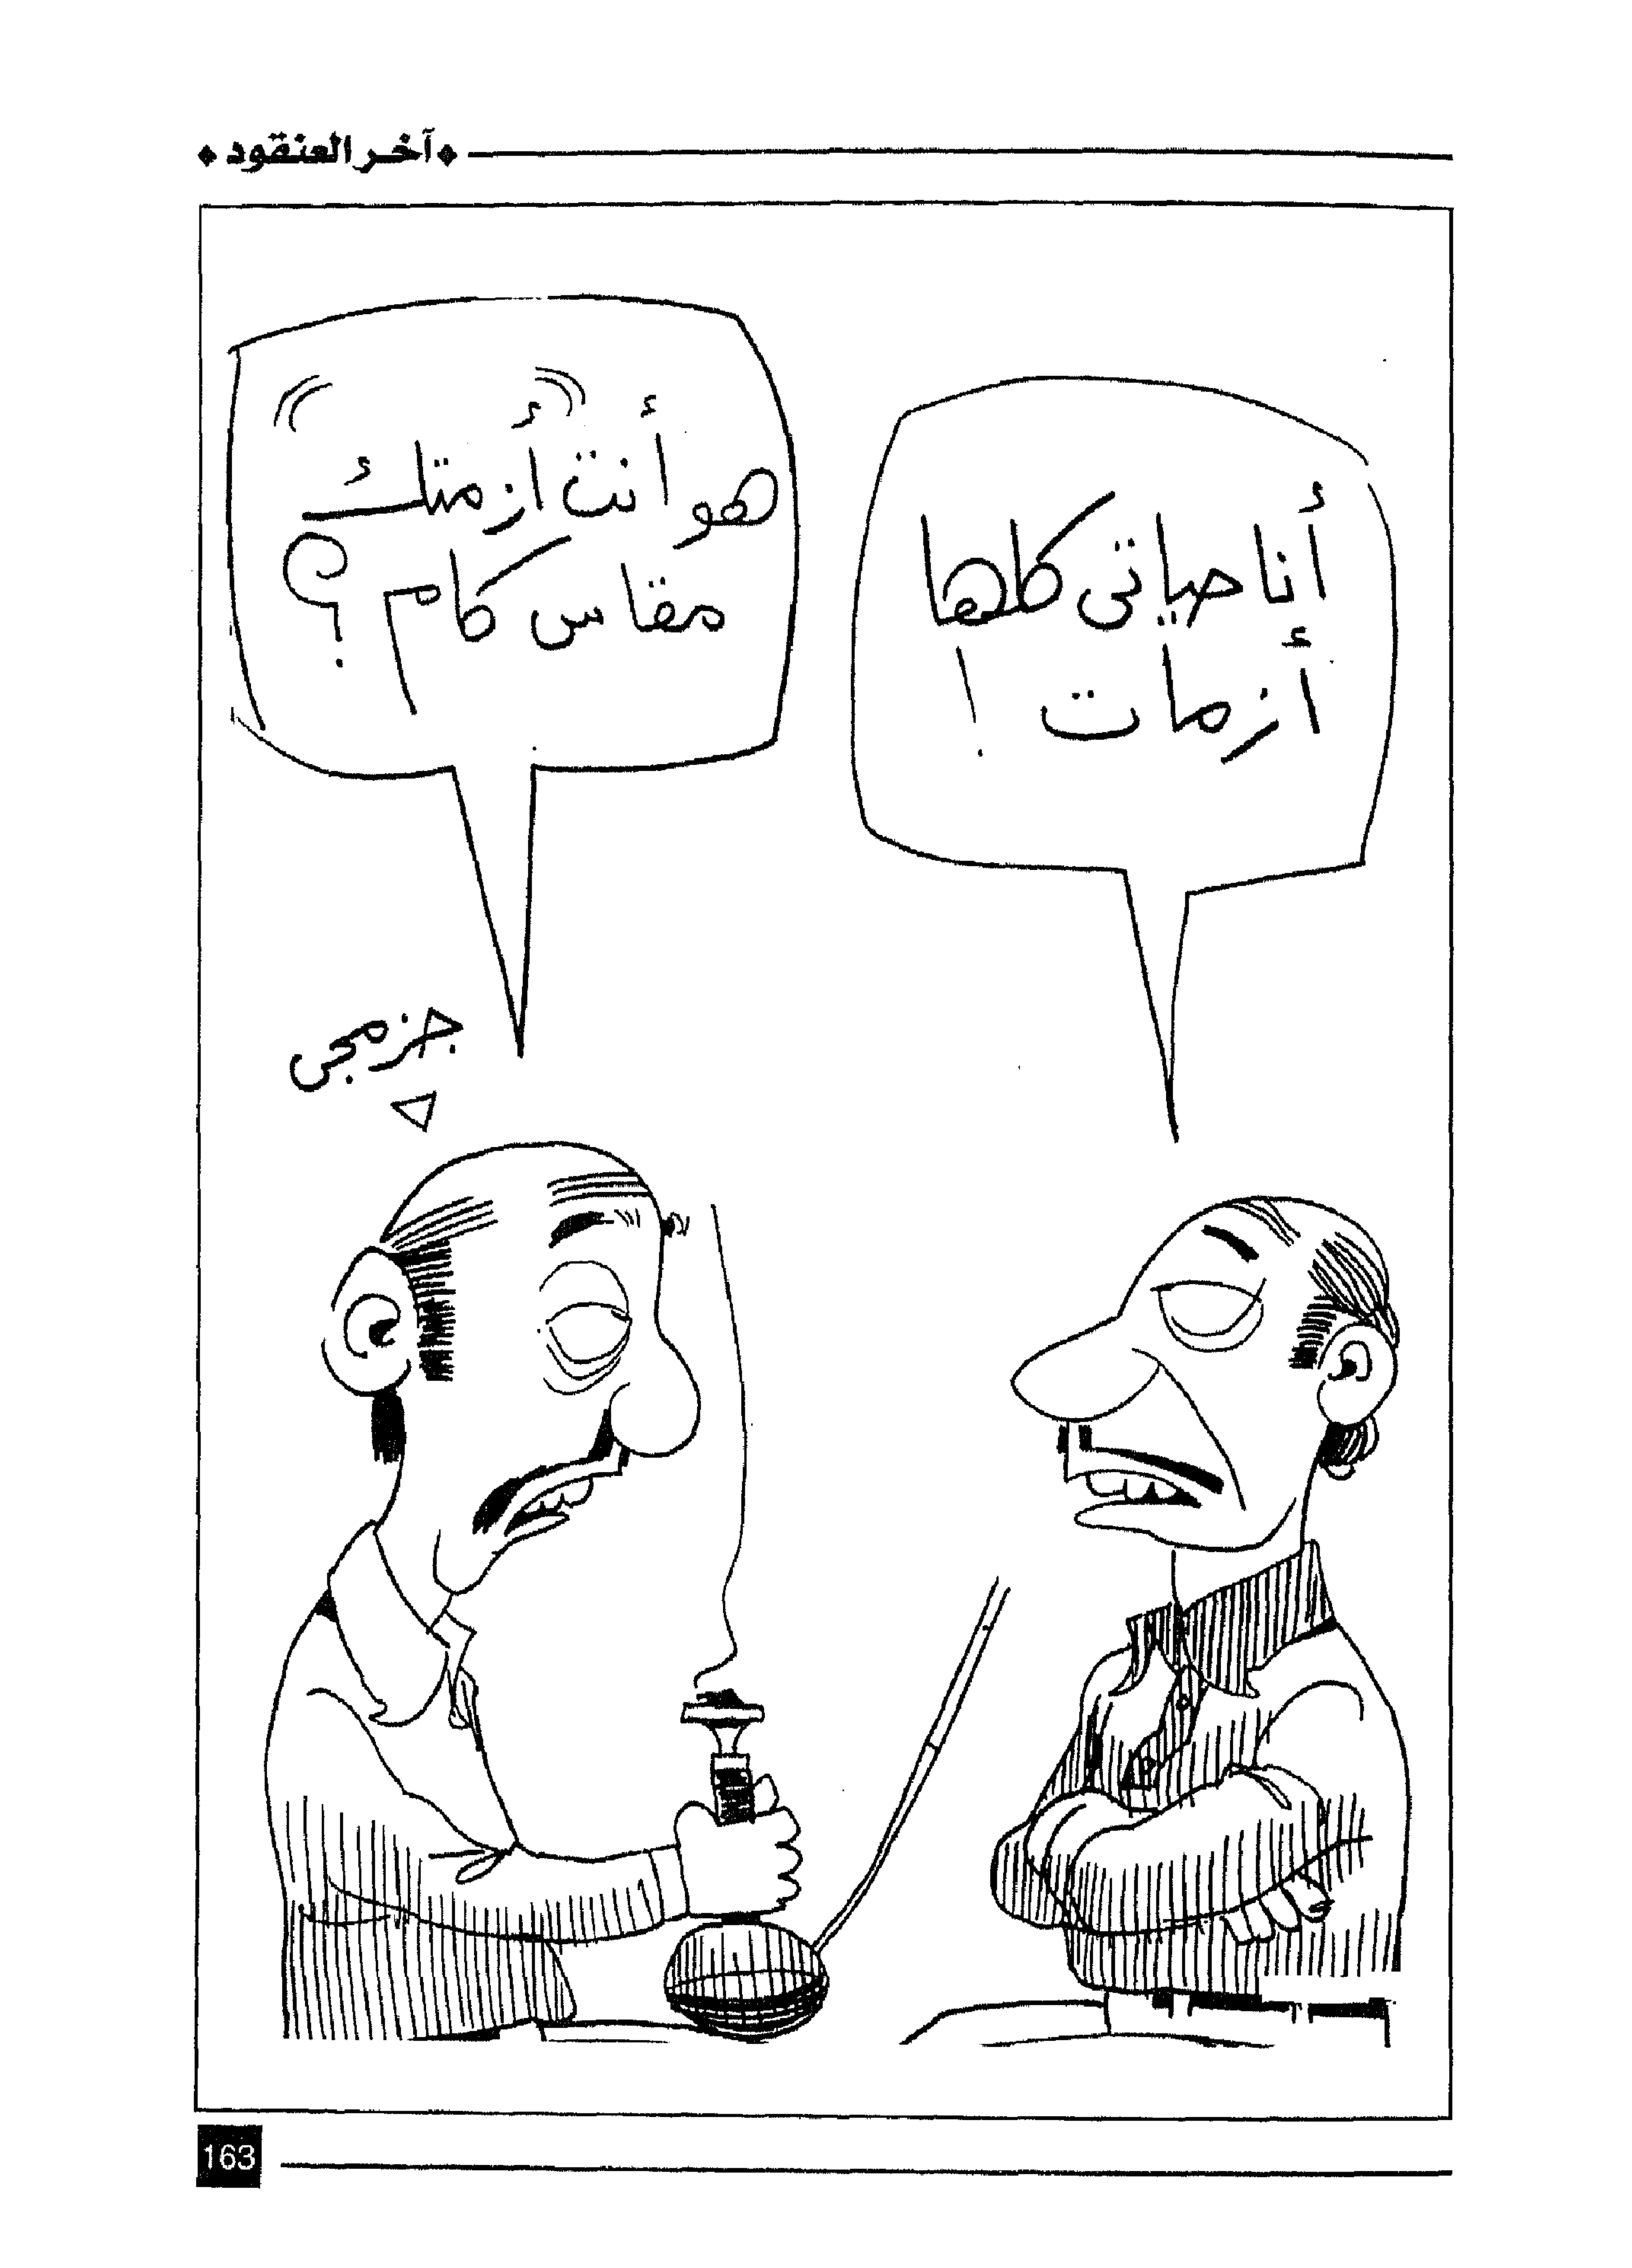 آخر العنقود
أنا حياتى كلها
أزمات !
هو أنت "أزمتك"
مقاس كام ؟
جزمجى
163